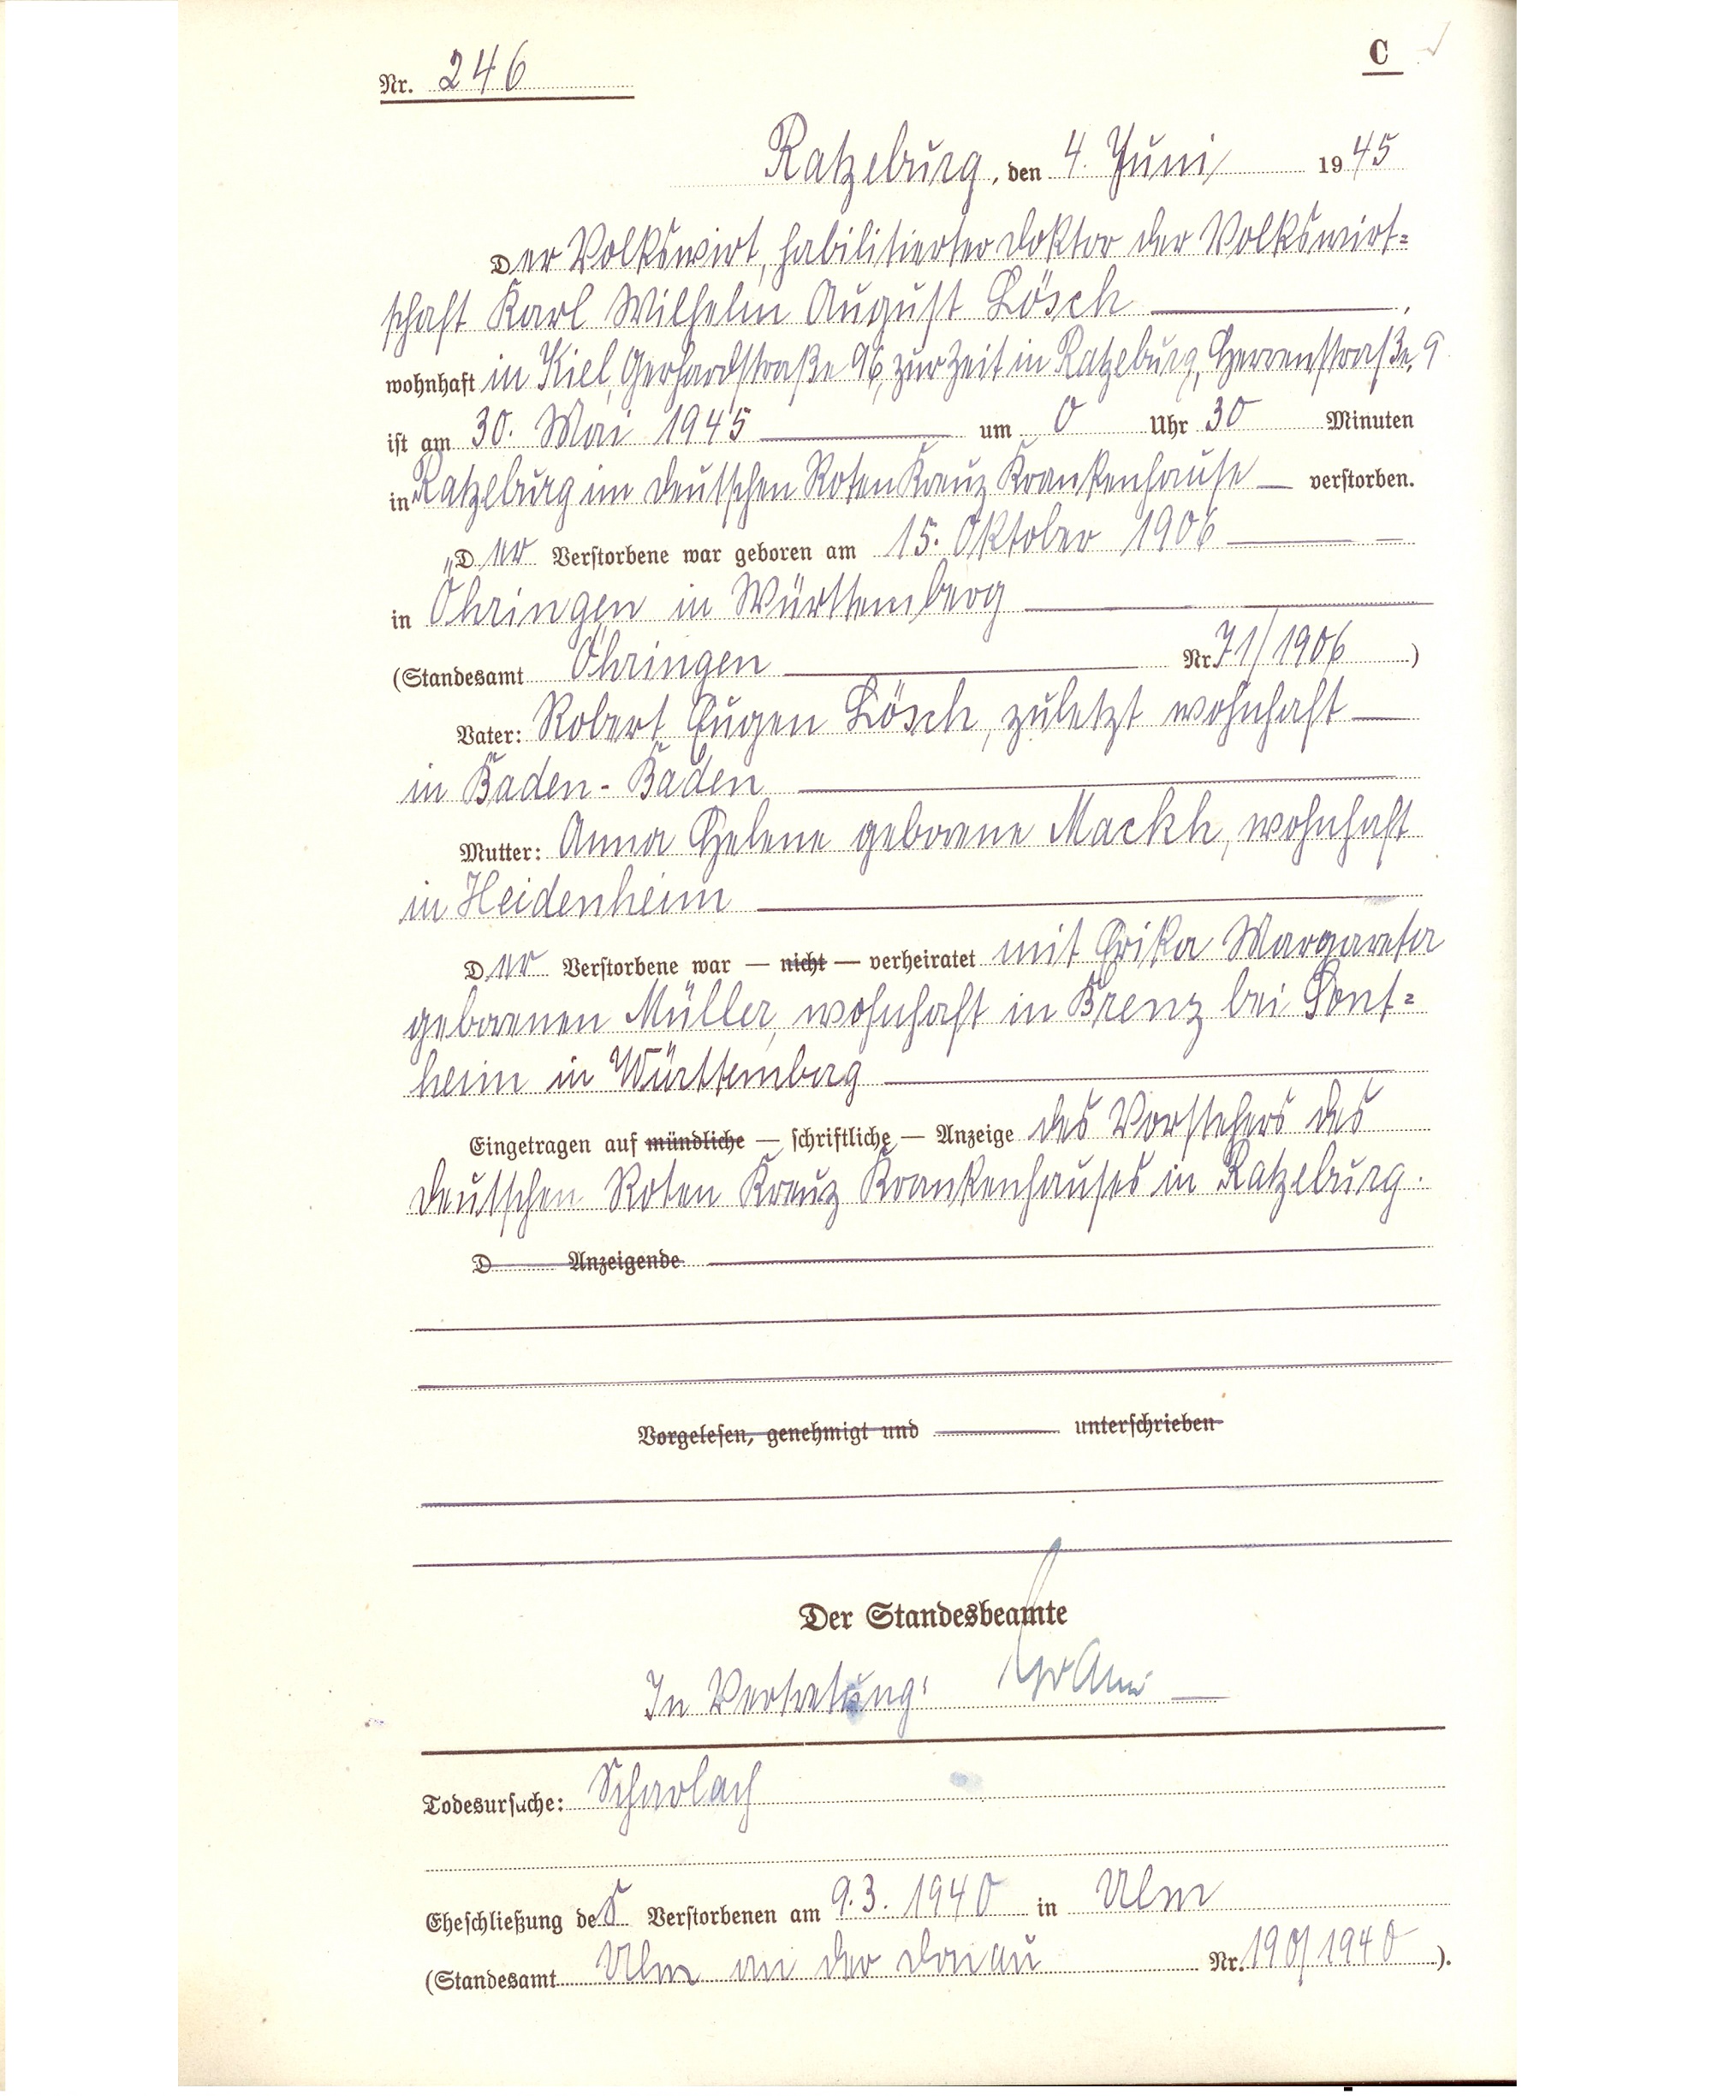 Nr. 246
C
Ratzeburg, den 4. Juni 1945
Der Volkswirt, habilitierter Doktor der Volkswirt-
schaft Karl Wilhelm August Lösch,
wohnhaft in Kiel, Gerhardstraße 96, zur Zeit in Ratzeburg, Herrenstraße 9
ist am 30. Mai 1945 um 0 Uhr 30 Minuten
in Ratzeburg im Deutschen Roten Kreuz Krankenhause verstorben.
Der Verstorbene war geboren am 15. Oktober 1906
in Öhringen in Württemberg
(Standesamt Öhringen Nr. 71/1906)
Vater: Robert Eugen Lösch, zuletzt wohnhaft
in Baden-Baden
Mutter: Anna Helene geborene Mackh, wohnhaft
in Heidenheim
Der Verstorbene war — nicht — verheiratet mit Erika Margareta
geborenen Müller, wohnhaft in Brenz bei Sont-
heim in Württemberg
Eingetragen auf mündliche — schriftliche — Anzeige des Vorstehers des
Deutschen Roten Kreuz Krankenhauses in Ratzeburg.
D Anzeigende
Vorgelesen, genehmigt und unterschrieben
Der Standesbeamte
In Vertretung:
Todesursache: Scharlach
Eheschließung des Verstorbenen am 9.3.1940 in Ulm
(Standesamt Ulm an der Donau Nr. 190/1940).